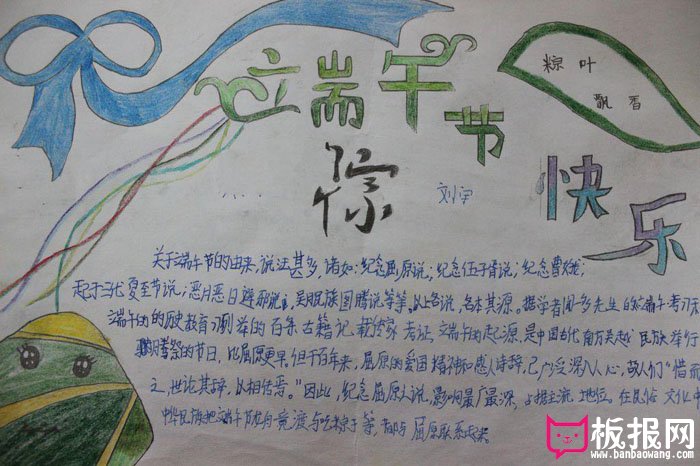 端午节
粽叶
飘香
粽
刘宇
快乐
关于端午节的由来,说法甚多,诸如:纪念屈原说;纪念伍子胥说;纪念曹娥
起于三代夏至节说;恶月恶日避邪说,吴月民族图腾说等等。以上各说,各本其源。据学者闻一多先生的《端午考》
端午的历史教育》列举的百余古籍记载及专家考证,端午的起源,是中国古代南方吴越民族举行
图腾祭的节日,比屈原更早。但千百年来,屈原的爱国精神和感人诗辞,已广泛深入人心,故人们“惜而
之,世论其辞,以相传焉。”因此,纪念屈原之说,影响最广最深,占据主流地位。在民俗文化中
中华民族把端午龙舟竞渡与吃粽子等,都与屈原联系起来
板报网
www.banbaowang.com